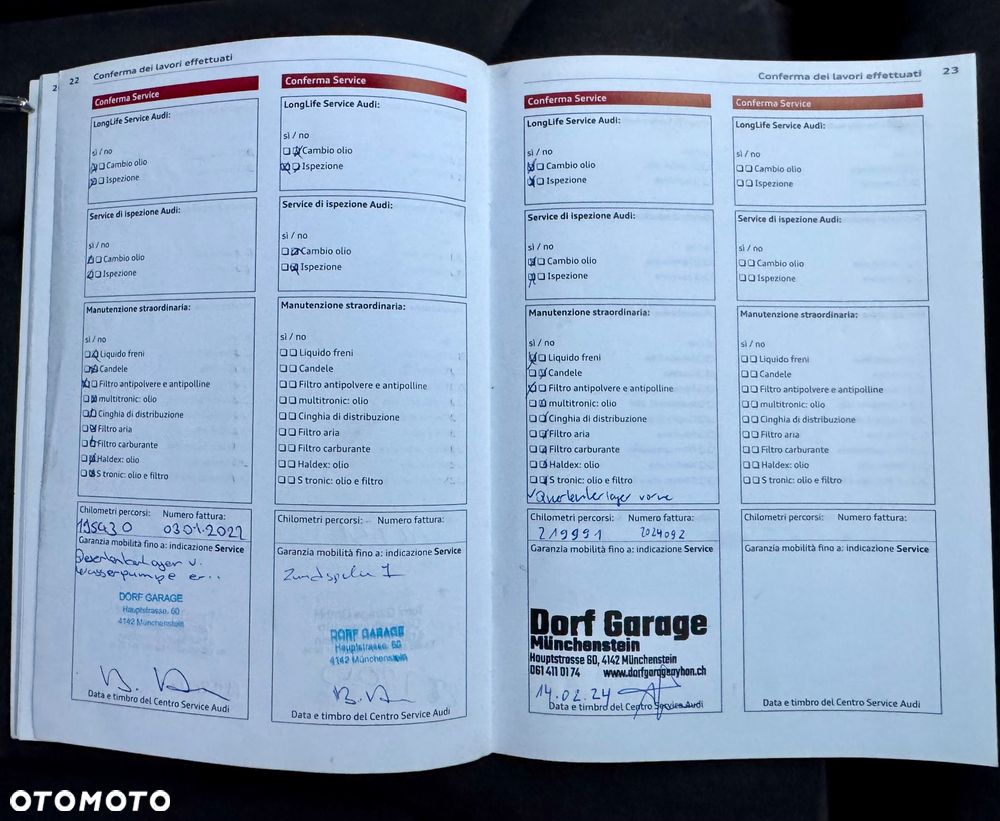 22 Conferma dei lavori effettuati
Conferma Service
LongLife Service Audi:
sì / no
Cambio olio
Ispezione
Service di ispezione Audi:
sì / no
Cambio olio
Ispezione
Manutenzione straordinaria:
sì / no
Liquido freni
Candele
Filtro antipolvere e antipolline
multitronic: olio
Cinghia di distribuzione
Filtro aria
Filtro carburante
Haldex: olio
S tronic: olio e filtro
Chilometri percorsi: Numero fattura:
Garanzia mobilità fino a: indicazione Service
Wasserpumpe er..
DORF GARAGE
Hauptstrasse. 60
4142 Münchenstein
Data e timbro del Centro Service Audi
Conferma Service
LongLife Service Audi:
sì / no
Cambio olio
Ispezione
Service di ispezione Audi:
sì / no
Cambio olio
Ispezione
Manutenzione straordinaria:
sì / no
Liquido freni
Candele
Filtro antipolvere e antipolline
multitronic: olio
Cinghia di distribuzione
Filtro aria
Filtro carburante
Haldex: olio
S tronic: olio e filtro
Chilometri percorsi: Numero fattura:
Garanzia mobilità fino a: indicazione Service
Zündspule 1
DORF GARAGE
Hauptstrasse. 60
4142 Münchenstein
Data e timbro del Centro Service Audi
Conferma dei lavori effettuati 23
Conferma Service
LongLife Service Audi:
sì / no
Cambio olio
Ispezione
Service di ispezione Audi:
sì / no
Cambio olio
Ispezione
Manutenzione straordinaria:
sì / no
Liquido freni
Candele
Filtro antipolvere e antipolline
multitronic: olio
Cinghia di distribuzione
Filtro aria
Filtro carburante
Haldex: olio
S tronic: olio e filtro
Querlenkerlager vorne
Chilometri percorsi: Numero fattura:
219991 2024092
Garanzia mobilità fino a: indicazione Service
Dorf Garage
Münchenstein
Hauptstrasse 60, 4142 Münchenstein
061 411 01 74 www.dorfgaragayhan.ch
14.02.24
Data e timbro del Centro Service Audi
Conferma Service
LongLife Service Audi:
sì / no
Cambio olio
Ispezione
Service di ispezione Audi:
sì / no
Cambio olio
Ispezione
Manutenzione straordinaria:
sì / no
Liquido freni
Candele
Filtro antipolvere e antipolline
multitronic: olio
Cinghia di distribuzione
Filtro aria
Filtro carburante
Haldex: olio
S tronic: olio e filtro
Chilometri percorsi: Numero fattura:
Garanzia mobilità fino a: indicazione Service
Data e timbro del Centro Service Audi
OTOMOTO